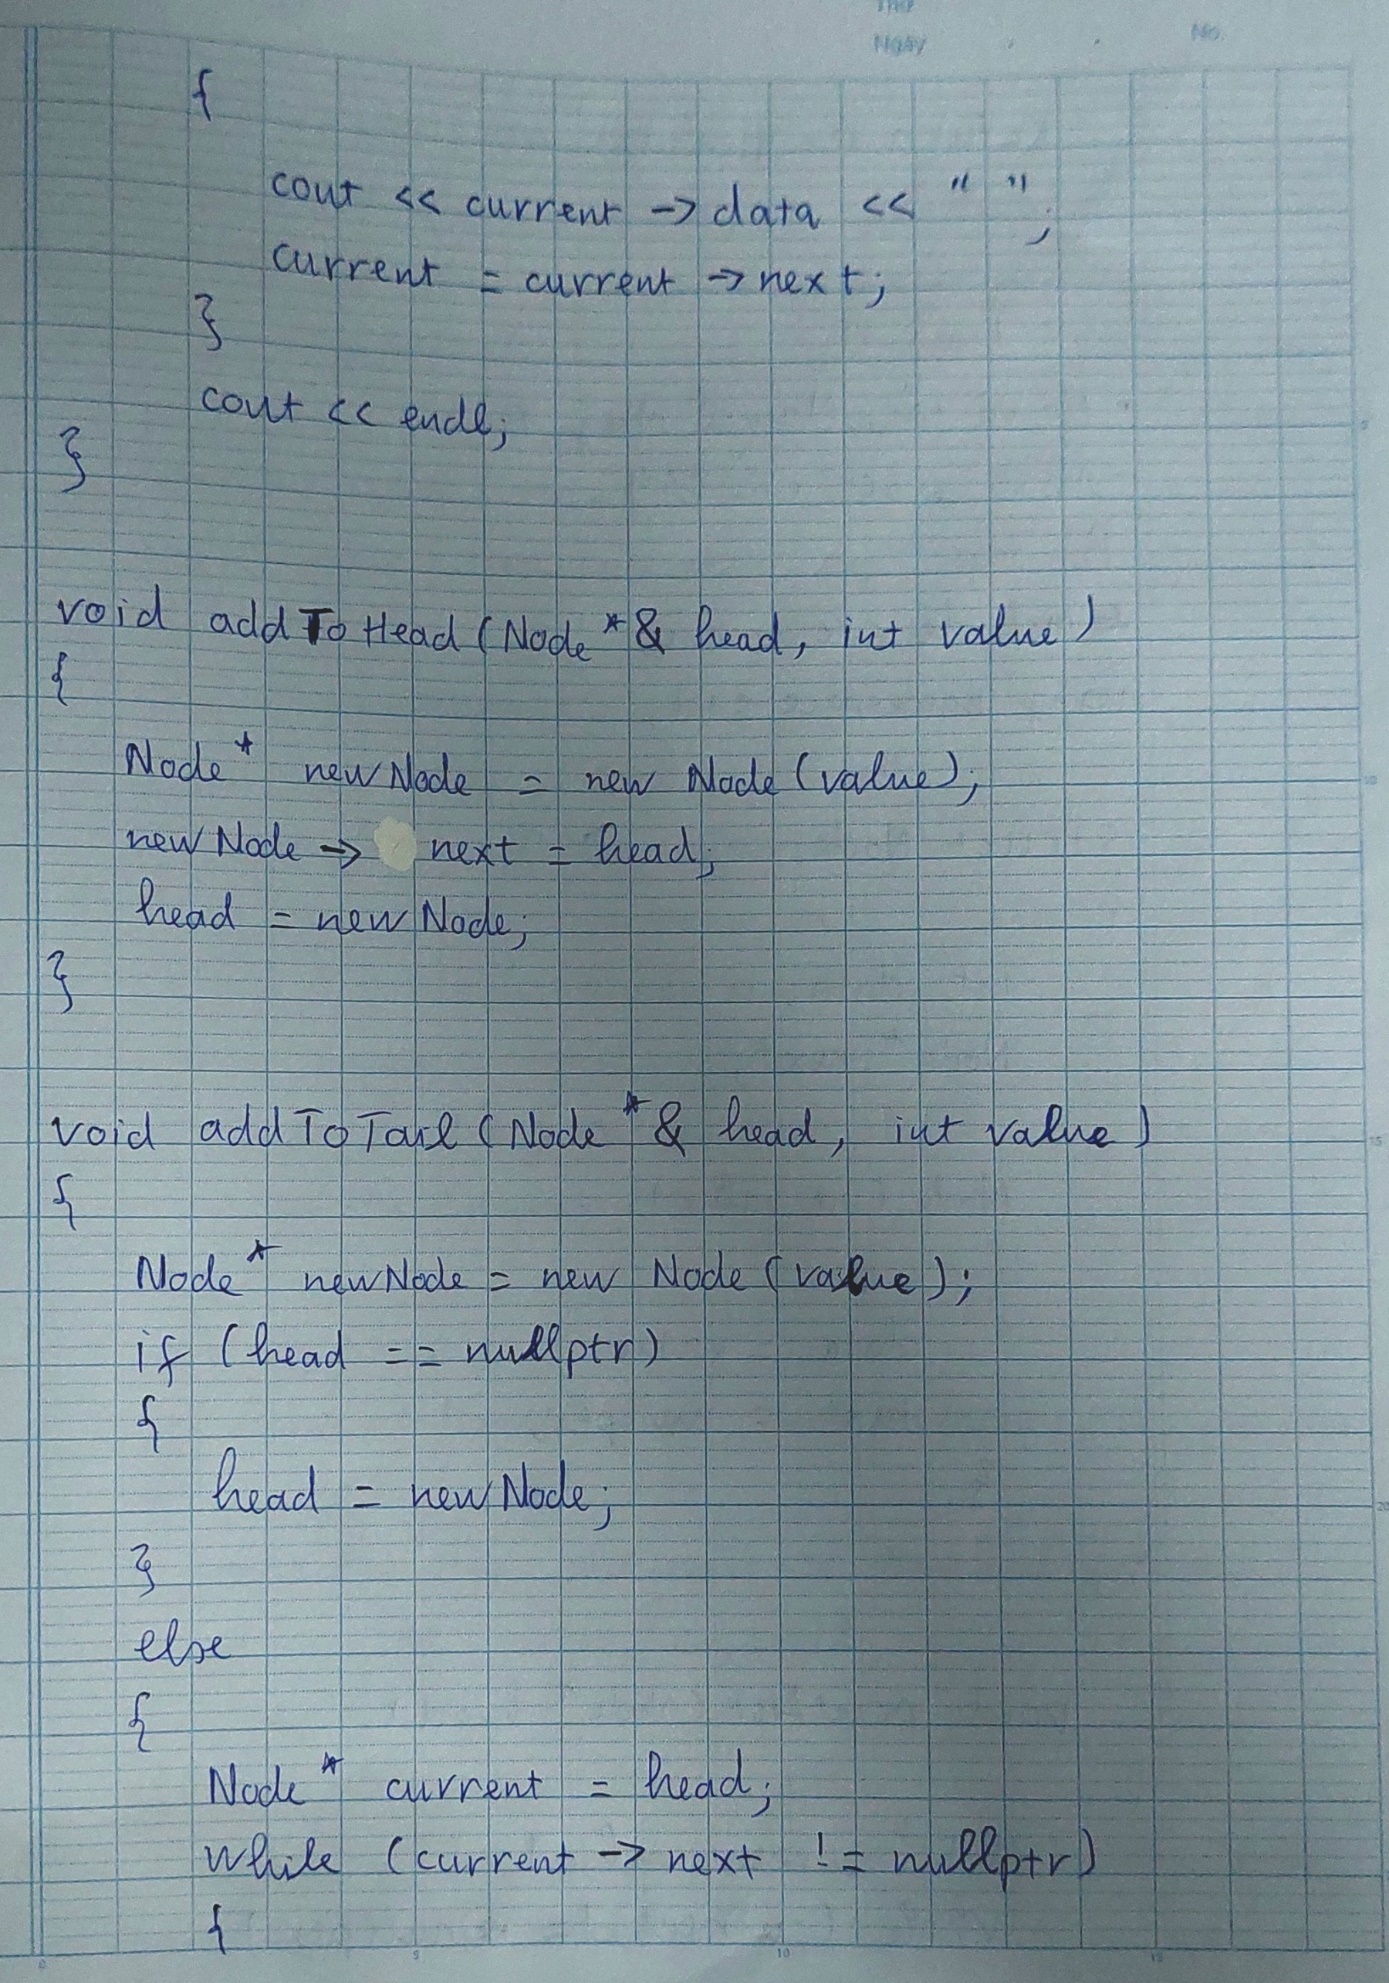 Thứ
Ngày No.
{
cout << current -> data << " ";
current = current -> next;
}
cout << endl;
}
void addToHead (Node *& head, int value)
{
Node * newNode = new Node (value);
newNode -> next = head;
head = newNode;
}
void addToTail (Node *& head, int value)
{
Node * newNode = new Node (value);
if (head == nullptr)
{
head = newNode;
}
else
{
Node * current = head;
while (current -> next != nullptr)
{
0 5 10 15
5
10
15
20